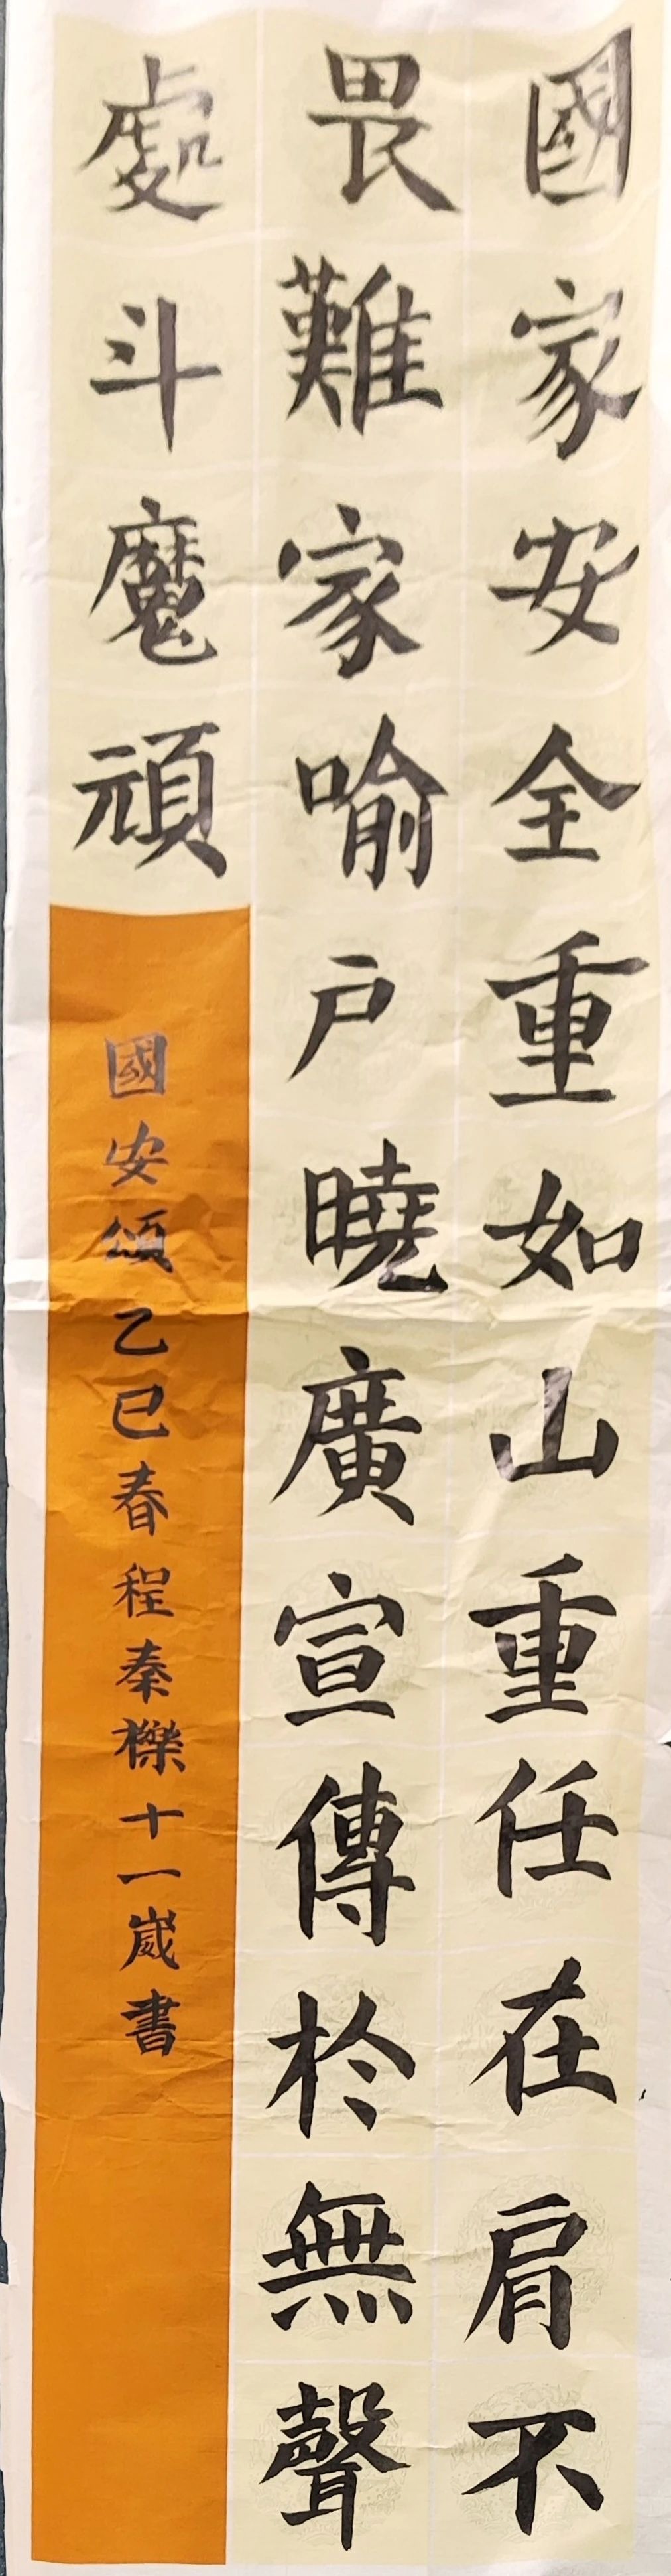 國家安全重如山重任在肩不
畏難家喻戶曉廣宣傳於無聲
處斗魔頑
國安頌乙巳春程秦櫟十一歲書